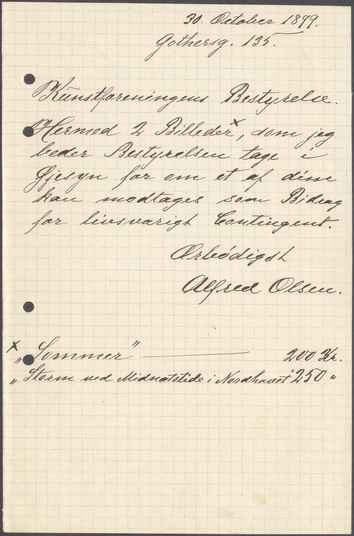 30. October 1899.
Gothersg. 135.
Kunstforeningens Bestyrelse.
Hermed 2 Billeder x, som jeg
beder Bestyrelsen tage i
Øjesyn for om et af dem
kan modtages som Bidrag
for livsvarigt Contingent.
Ærbödigst
Alfred Olsen.
x „Sommer" — 200 Kr.
„Storm ved Midnatstide i Nordhavet" 250 "